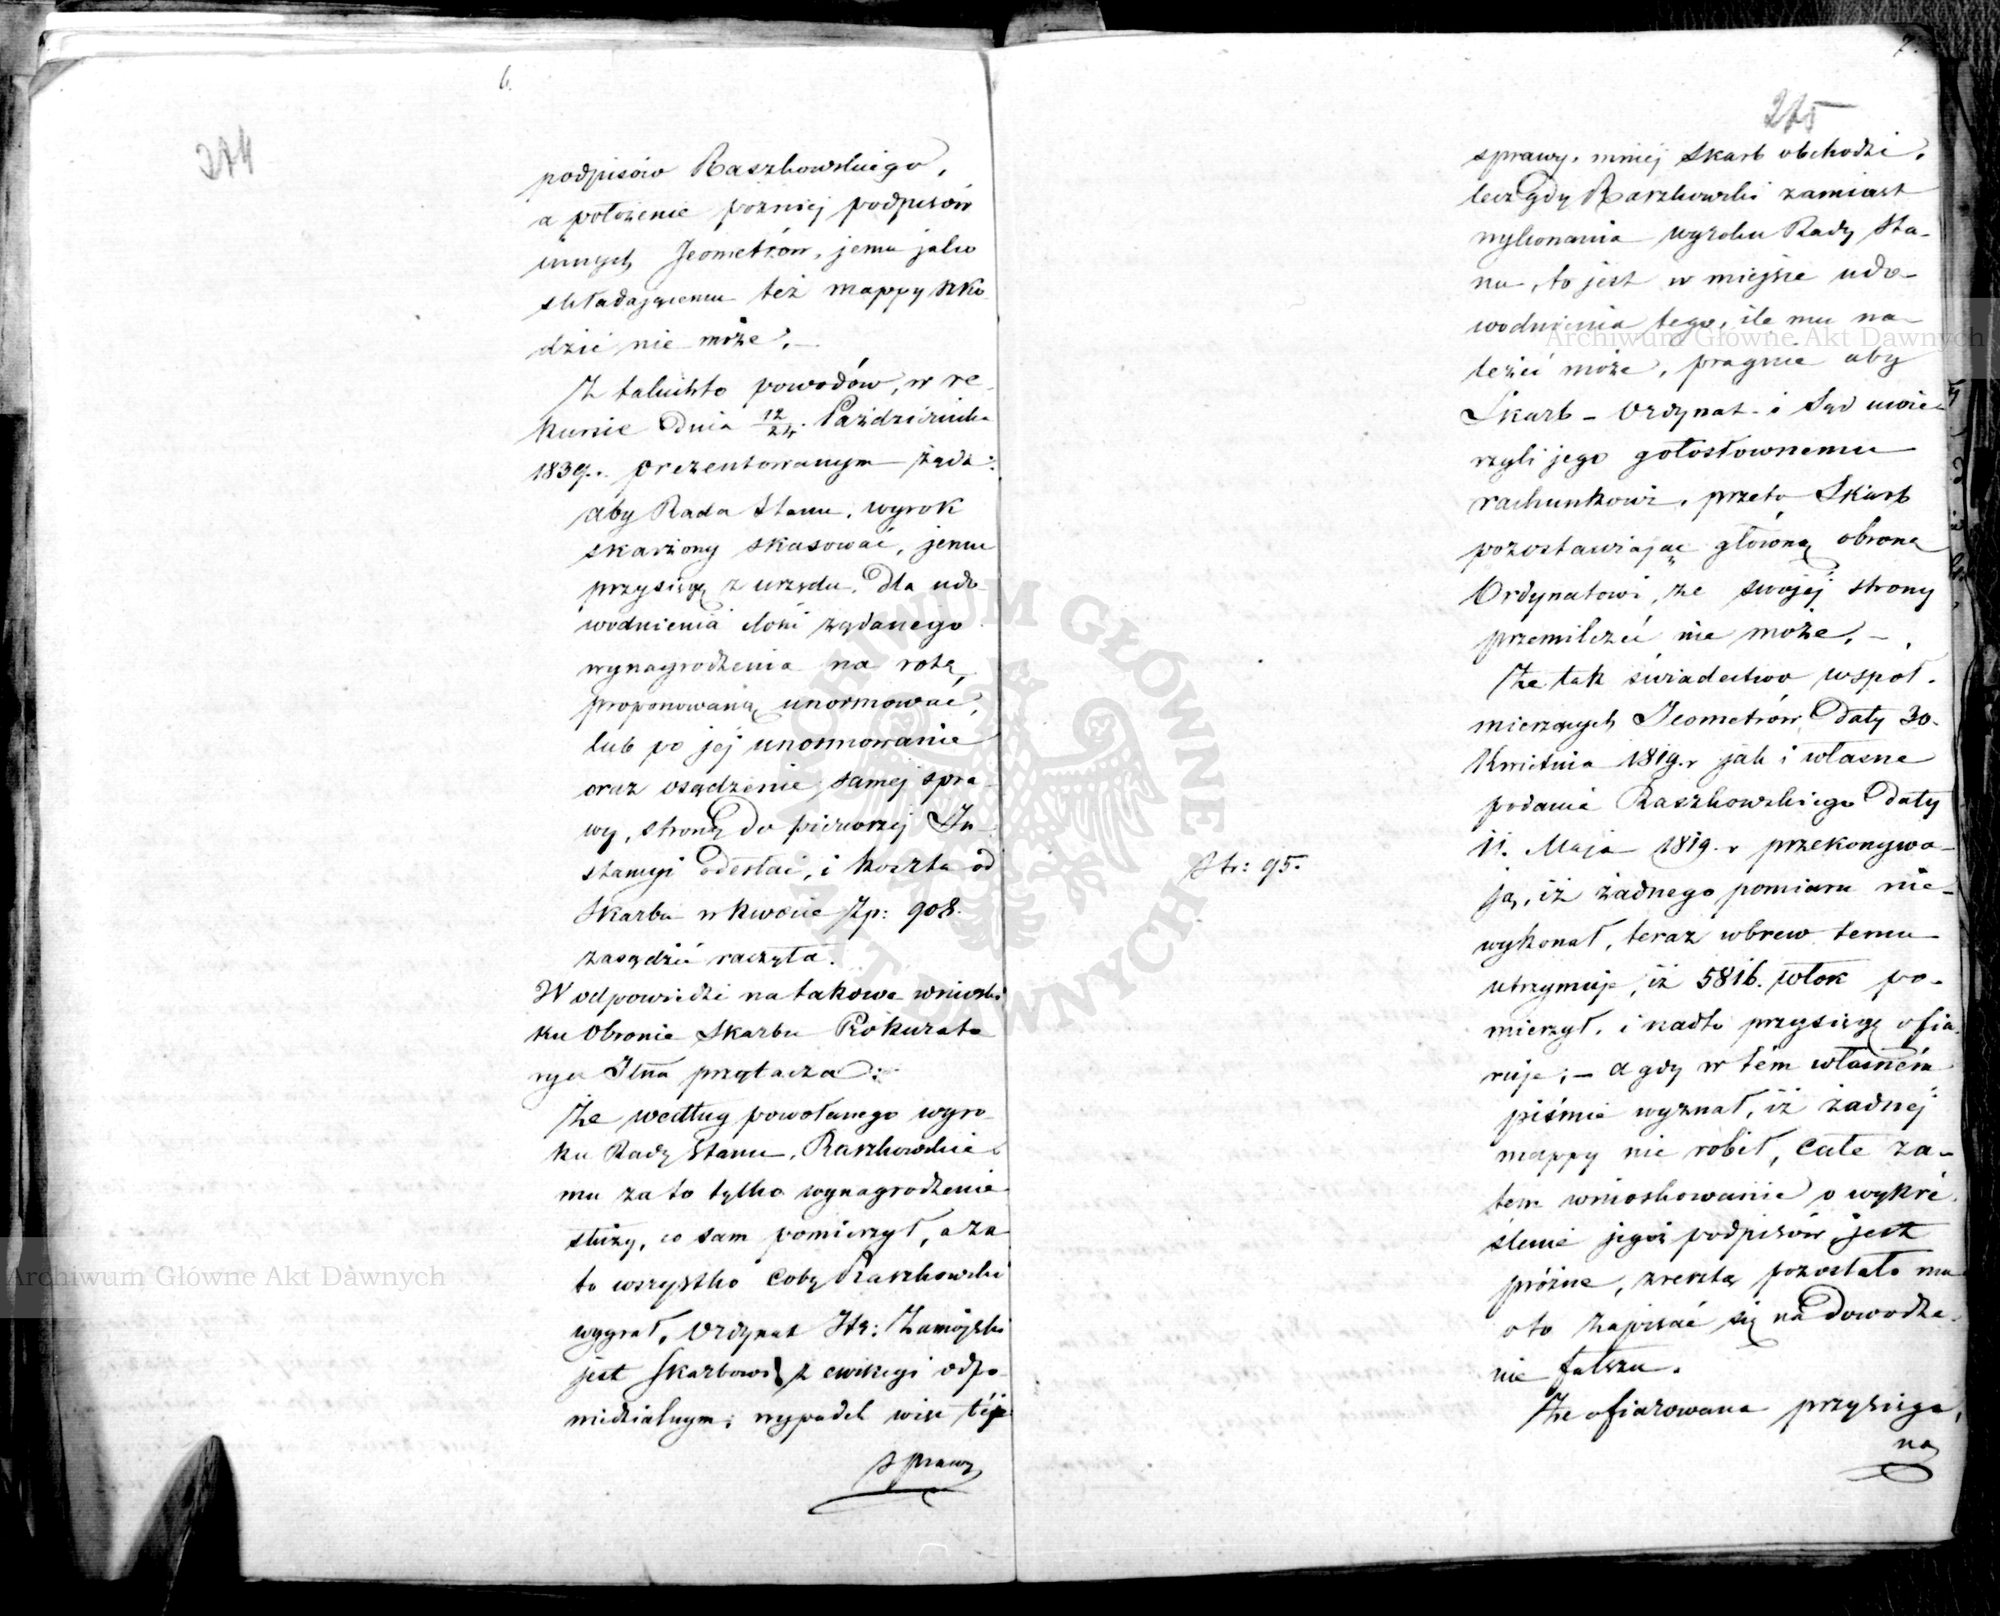 6.
274
podpisów Raszkowskiego,
a położenie pózniej podpisów
innych Jeometrów, jemu jako
składającemu też mappy szko-
dzić nie może. —
Z takichto powodów, w re-
kursie Dnia 12/24. Października
1839.. prezentowanym żąda:
aby Rada Stanu, wyrok
skarżony skasować, jemu
przysięgę z urzędu, Dla udo-
wodnienia ilości żądanego
wynagrodzenia na rotę
proponowaną unormować,
lub po jej unormowanie
oraz osądzenie samej spra-
wy, strony do pierwszej In-
stancyi odesłać, i koszta od
Skarbu w kwocie Zp: 908.
zasądzić raczyła.
W odpowiedzi na takowe wnioski
ku Obronie Skarbu Prokurato
rya Jlna przytacza:
Że według powołanego wyro-
ku Rady Stanu, Raszkowskie-
mu za to tylko wynagrodzenie
służy, co sam pomierzył, a za
to wszystko coby Raszkowski
wygrał, Ordynat Hr: Zamojski
jest Skarbowi z ewikcyi odpo-
wiedzialnym; wypadek więc téj
sprawy
7.
275
sprawy, mniej Skarb obchodzi,
lecz gdy Raszkowski zamiast
wykonania wyroku Rady Sta-
nu, to jest w miejsce udo-
wodnienia tego, ile mu na-
leżeć może, pragnie aby
Skarb - Ordynat i Sąd uwie-
rzyli jego gołosłownemu
rachunkowi, przeto Skarb
pozostawiając główną obronę
Ordynatowi, ze swojej strony
przemilczeć nie może. —
Że tak świadectwo wspoł-
mierzących Jeometrów Daty 30.
Kwietnia 1819. r jak i własne
podanie Raszkowskiego Daty
11. Maja 1819. r przekonywa-
ją, iż żadnego pomiaru nie-
Str: 95.
wykonał, teraz wbrew temu
utrzymuje, iż 5816. włok po-
mierzył, i nadto przysięgę ofia-
ruje; — a gdy w tém własném
piśmie wyznał, iż żadnej
mappy nie robił, całe za-
tem wnioskowanie o wykre-
ślenie jegoż podpisów, jest
próżne, zresztą pozostało mu
oto zapisać się na Dowodze-
nie fałszu.
Że ofiarowana przysięga,
na
Archiwum Główne Akt Dawnych
Archiwum Główne Akt Dawnych
ARCHIWUM GŁÓWNE AKT DAWNYCH